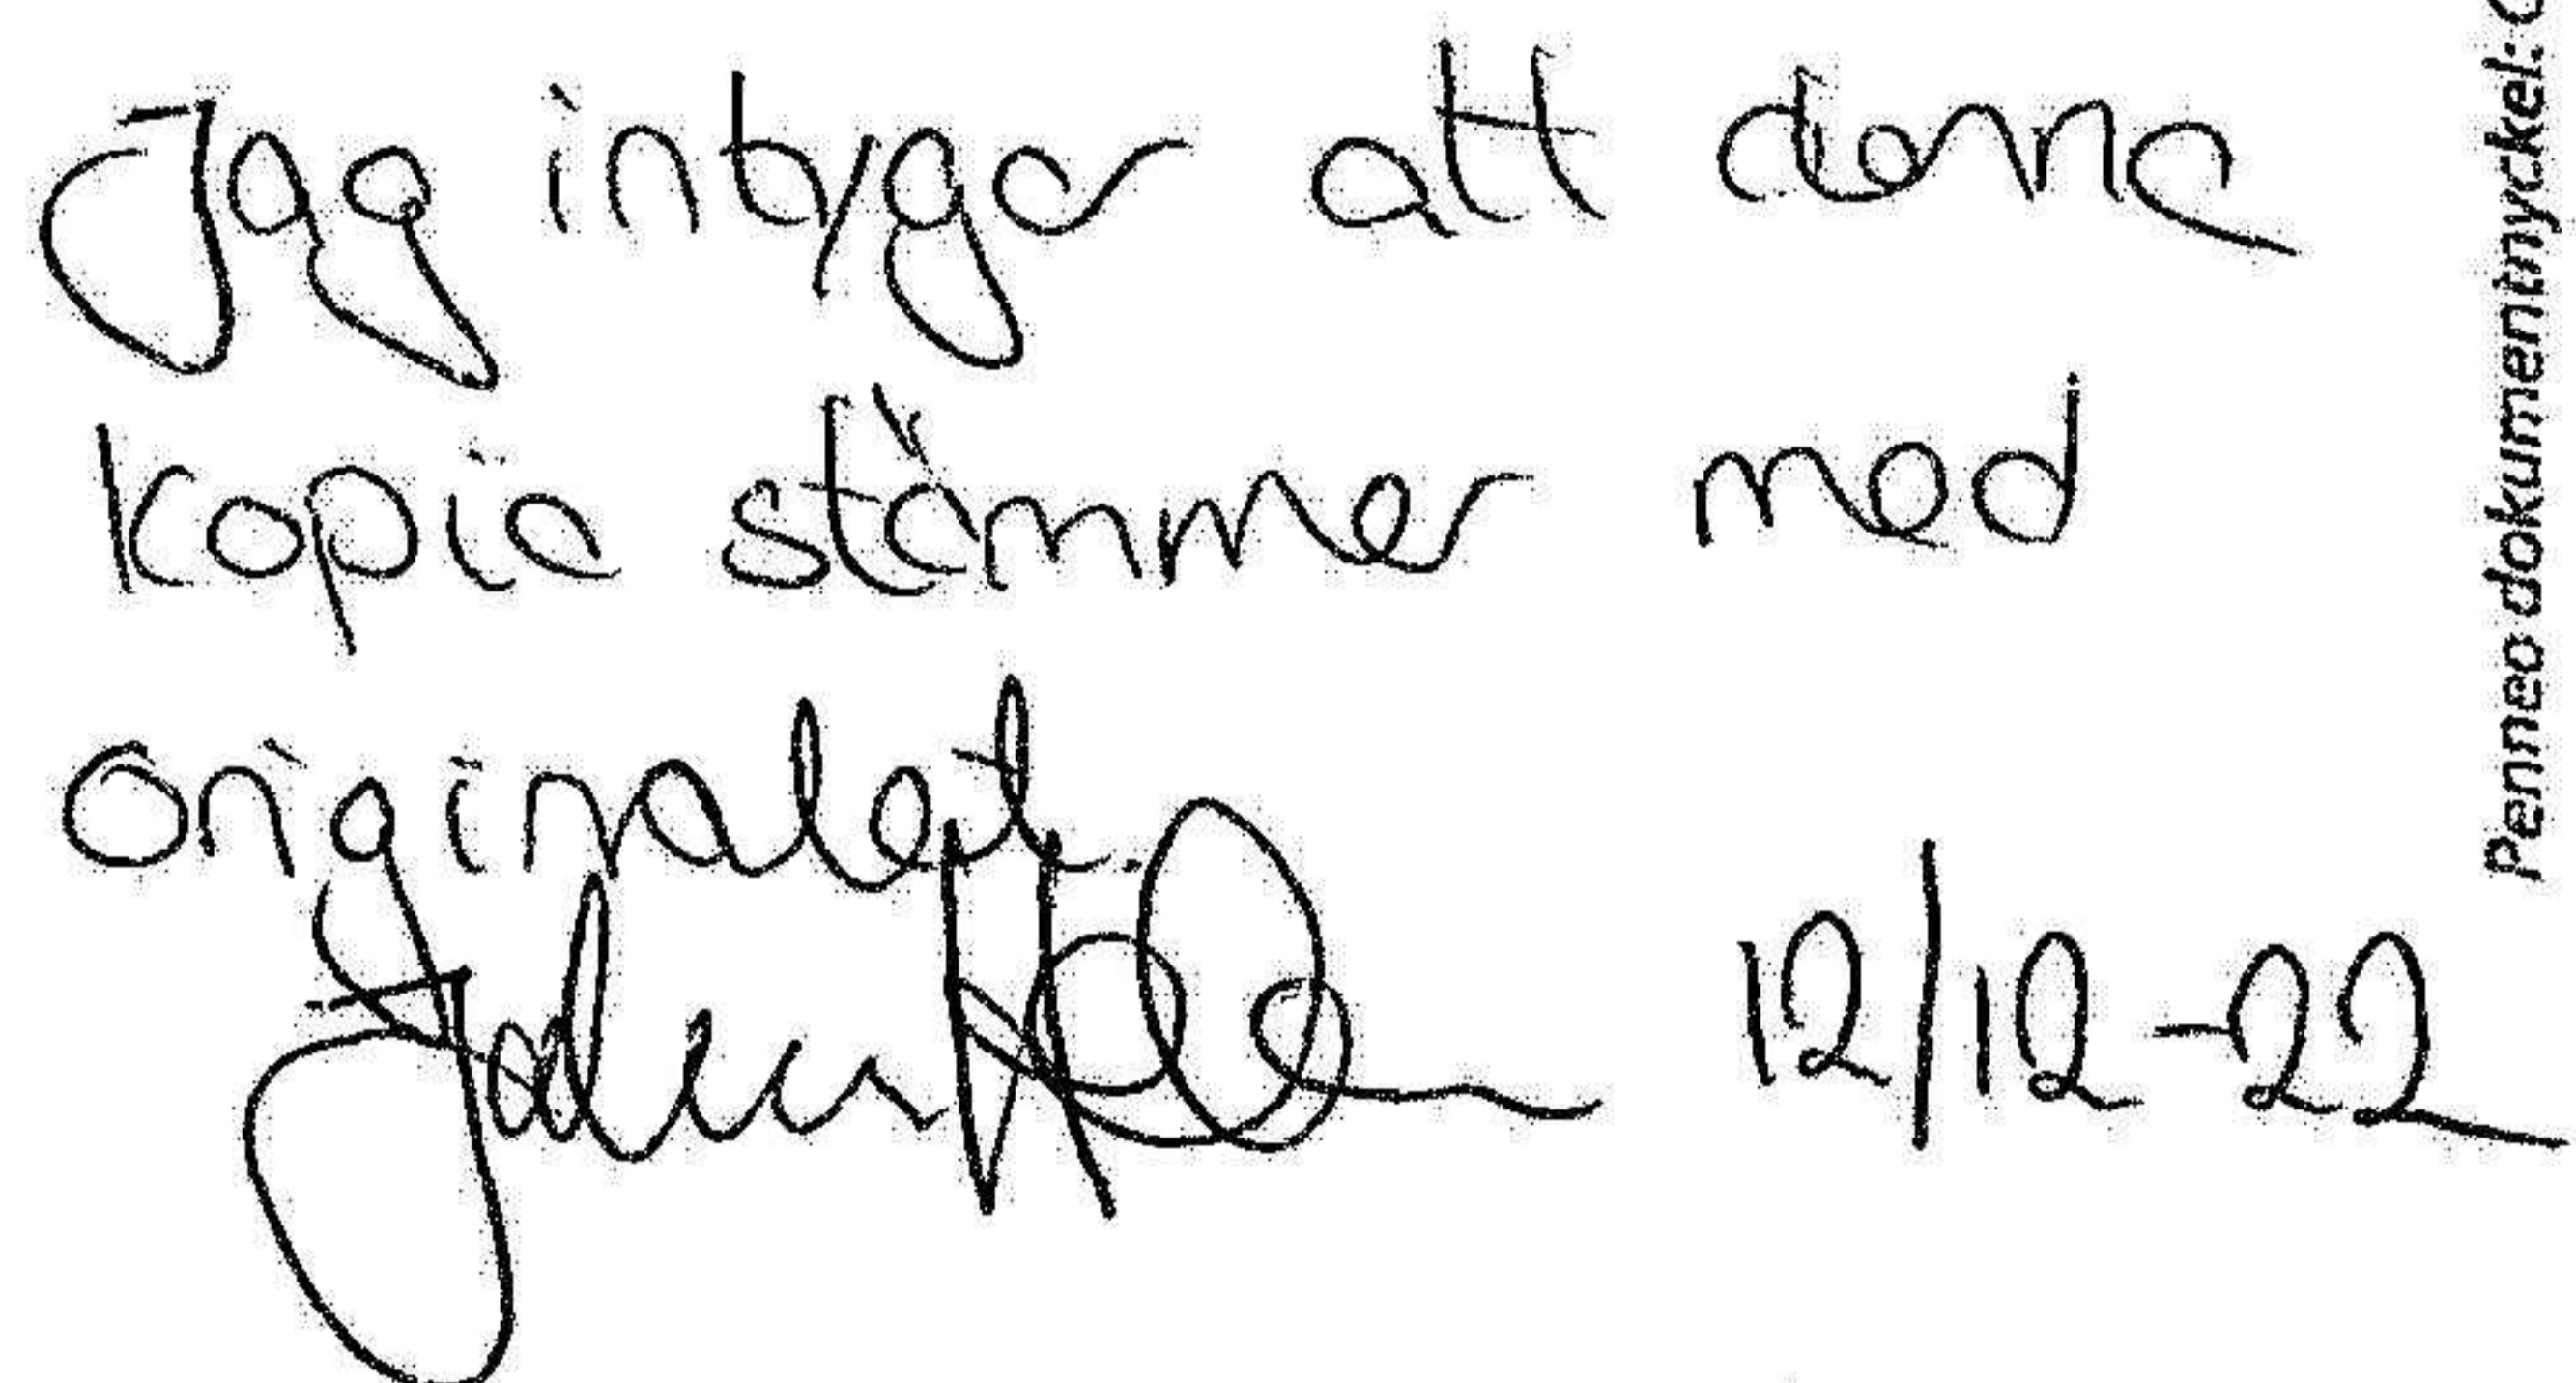 Jag intygar att denna
kopia stämmer med
originalet.
12/12-22
Penneo dokumentnyckel: